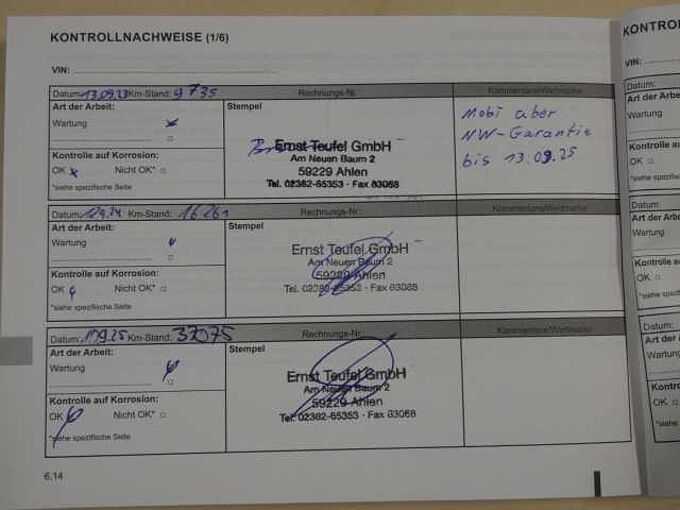 KONTROLLNACHWEISE (1/6)
VIN:
Datum: 13.09.23 Km-Stand: 9735 Rechnungs-Nr. Kommentare/Werkstatt
Art der Arbeit: Stempel
Wartung
Kontrolle auf Korrosion:
OK Nicht OK*
*siehe spezifische Seite
Ernst Teufel GmbH
Am Neuen Baum 2
59229 Ahlen
Tel. 02382-65353 - Fax 83068
Mobi aber
NW-Garantie
bis 13.09.25
Datum: Km-Stand: 16261 Rechnungs-Nr.
Art der Arbeit: Stempel
Wartung
Kontrolle auf Korrosion:
OK Nicht OK*
*siehe spezifische Seite
Ernst Teufel GmbH
Am Neuen Baum 2
59229 Ahlen
Tel. 02382-65353 - Fax 83068
Datum: Km-Stand: 37075 Rechnungs-Nr.
Art der Arbeit: Stempel
Wartung
Kontrolle auf Korrosion:
OK Nicht OK*
*siehe spezifische Seite
Ernst Teufel GmbH
Am Neuen Baum 2
59229 Ahlen
Tel. 02382-65353 - Fax 83068
6.14
KONTROL
VIN:
Datum:
Art der Arbe
Wartung
Kontrolle a
OK
*siehe spezifis
Datum:
Art der Ar
Wartung
Kontrolle
OK
*siehe spez
Datum:
Art der
Wartung
Kontroll
OK
*siehe sp